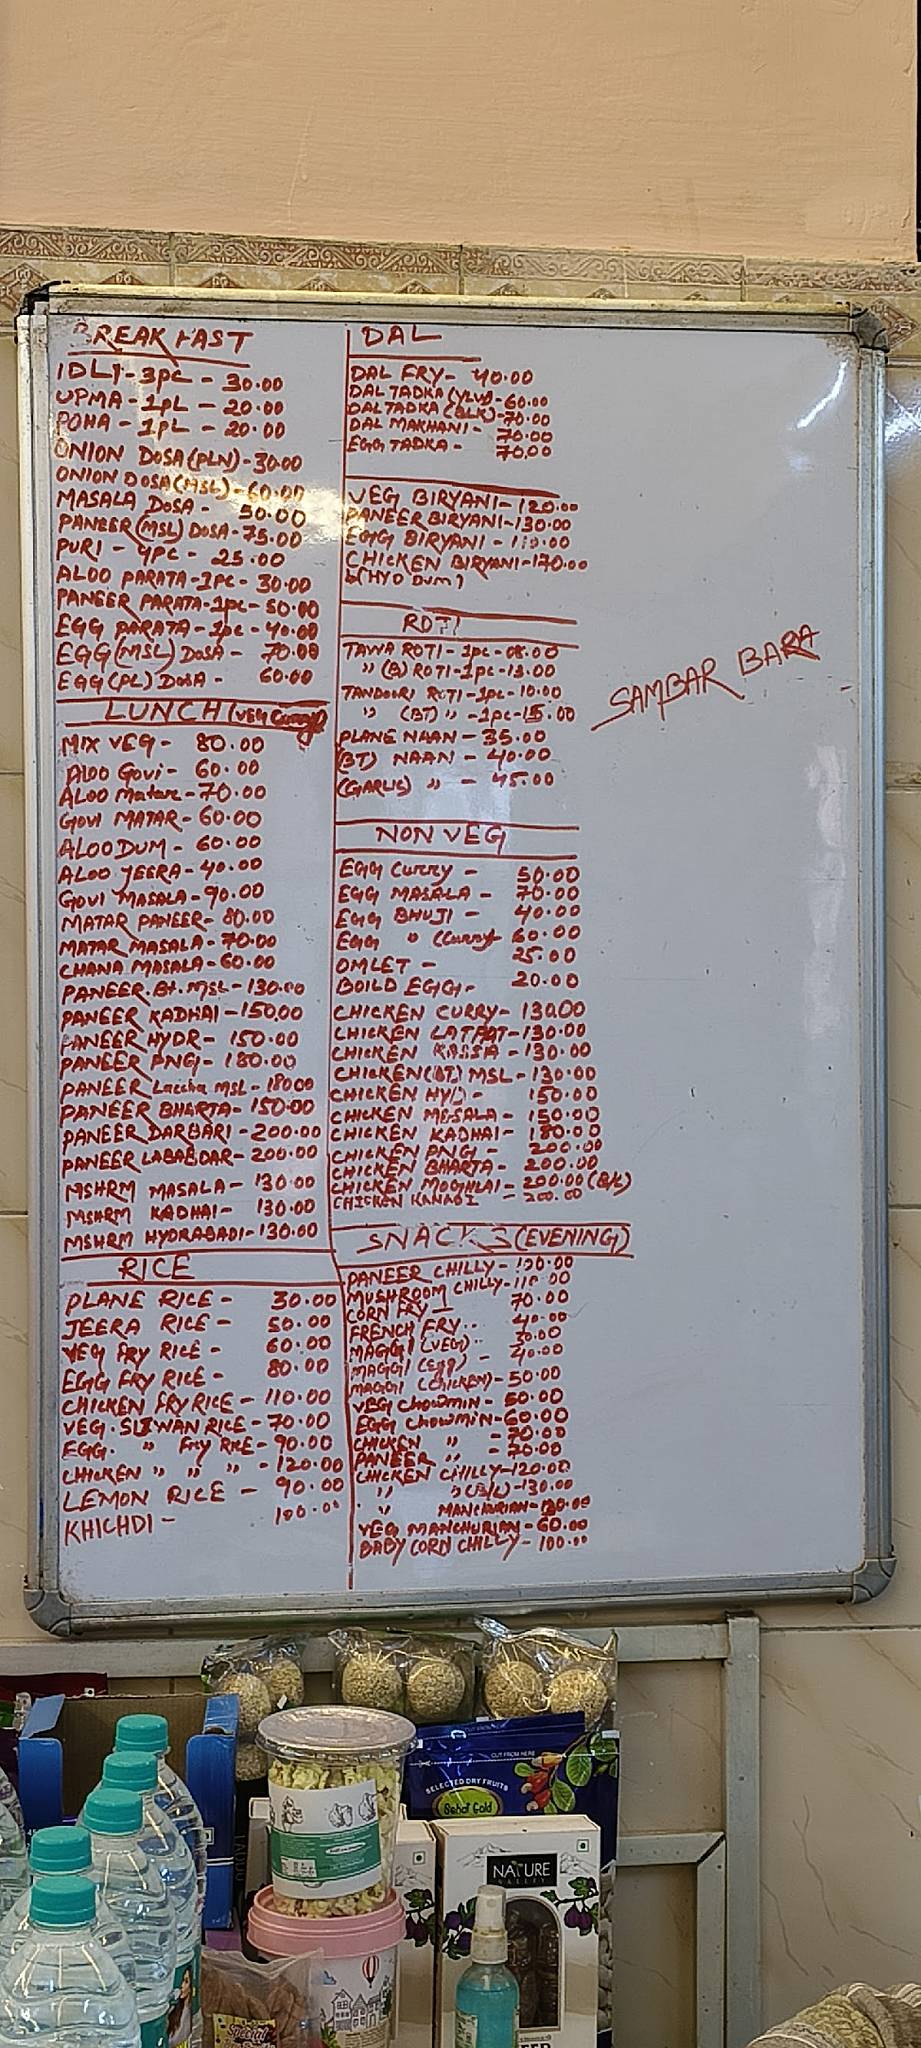 BREAKFAST
IDLI - 3pc - 30.00
UPMA - 1PL - 20.00
POHA - 1PL - 20.00
ONION DOSA (PLN) - 30.00
ONION DOSA (MSL) - 60.00
MASALA DOSA - 50.00
PANEER (MSL) DOSA - 75.00
PURI - 4PC - 25.00
ALOO PARATA - 1PC - 30.00
PANEER PARATA - 1pc - 50.00
EGG PARATA - 1pc - 40.00
EGG (MSL) DOSA - 70.00
EGG (PL) DOSA - 60.00
LUNCH (VEG Curry)
MIX VEG - 80.00
ALOO GOVI - 60.00
ALOO Matar - 70.00
GOVI MATAR - 60.00
ALOO DUM - 60.00
ALOO JEERA - 40.00
GOVI MASALA - 90.00
MATAR PANEER - 80.00
MATAR MASALA - 70.00
CHANA MASALA - 60.00
PANEER. Bt. MSL - 130.00
PANEER KADHAI - 150.00
PANEER HYDR - 150.00
PANEER PNGI - 180.00
PANEER Laccha MSL - 180.00
PANEER BHARTA - 150.00
PANEER DARBARI - 200.00
PANEER LABABDAR - 200.00
MSHRM MASALA - 130.00
MSHRM KADHAI - 130.00
MSHRM HYDRABADI - 130.00
RICE
PLANE RICE - 30.00
JEERA RICE - 50.00
VEG FRY RICE - 60.00
EGG FRY RICE - 80.00
CHICKEN FRY RICE - 110.00
VEG. SIZWAN RICE - 70.00
EGG. " FRY RICE - 90.00
CHICKEN " " " - 120.00
LEMON RICE - 90.00
KHICHDI - 100.00
DAL
DAL FRY - 40.00
DAL TADKA (YLW) - 60.00
DAL TADKA (BLK) - 70.00
DAL MAKHANI - 70.00
EGG TADKA - 70.00
VEG BIRYANI - 120.00
PANEER BIRYANI - 130.00
EGG BIRYANI -
CHICKEN BIRYANI - 170.00
(HYD DUM)
ROTI
TAWA ROTI - 1pc - 08.00
" (B) ROTI - 1PC - 13.00
TANDOORI ROTI - 1pc - 10.00
" (BT) " - 1PC - 15.00
PLANE NAAN - 35.00
(BT) NAAN - 40.00
(GARLIC) " - 45.00
NON VEG
EGG Curry - 50.00
EGG MASALA - 70.00
EGG BHUJI - 40.00
EGG " (Curry) 60.00
OMLET - 25.00
BOILD EGG - 20.00
CHICKEN CURRY - 130.00
CHICKEN LATPAT - 130.00
CHICKEN KASSA - 130.00
CHICKEN (BT) MSL - 130.00
CHICKEN HYD - 150.00
CHICKEN MASALA - 150.00
CHICKEN KADHAI - 180.00
CHICKEN PNGI - 200.00
CHICKEN BHARTA - 200.00
CHICKEN MOGHLAI - 200.00 (B/L)
CHICKEN - 200.00
SNACKS (EVENING)
PANEER CHILLY -
MUSHROOM CHILLY - 110.00
CORN FRY - 70.00
FRENCH FRY - 40.00
MAGGI (VEG) - 30.00
MAGGI (Egg) - 40.00
MAGGI (CHICKEN) - 50.00
VEG CHOWMIN - 50.00
EGG CHOWMIN - 60.00
CHICKEN " - 70.00
PANEER " - 70.00
CHICKEN CHILLY - 120.00
" " (B/L) - 130.00
" MANCHURIAN -
VEG MANCHURIAN - 60.00
BABY CORN CHILLY - 100.00
SAMBAR BARA
CUT FROM HERE
SELECTED DRY FRUITS
Gold
NATURE
VALLEY
Special